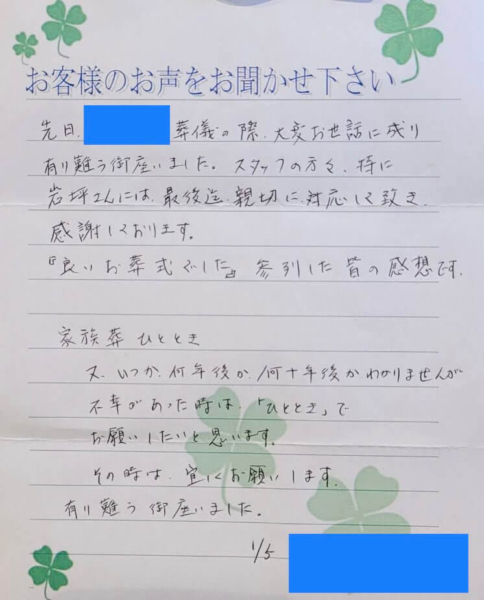 お客様のお声をお聞かせ下さい
先日、葬儀の際、大変お世話に成り
有り難う御座いました。スタッフの方々、特に
岩坪さんには、最後迄、親切に対応して致き、
感謝しております。
『良いお葬式でした』参列した皆の感想です。
家族葬ひととき
又、いつか、何年後か、何十年後かわかりませんが
不幸があった時は、「ひととき」で
お願いしたいと思います。
その時は、宜しくお願いします。
有り難う御座いました。
1/5